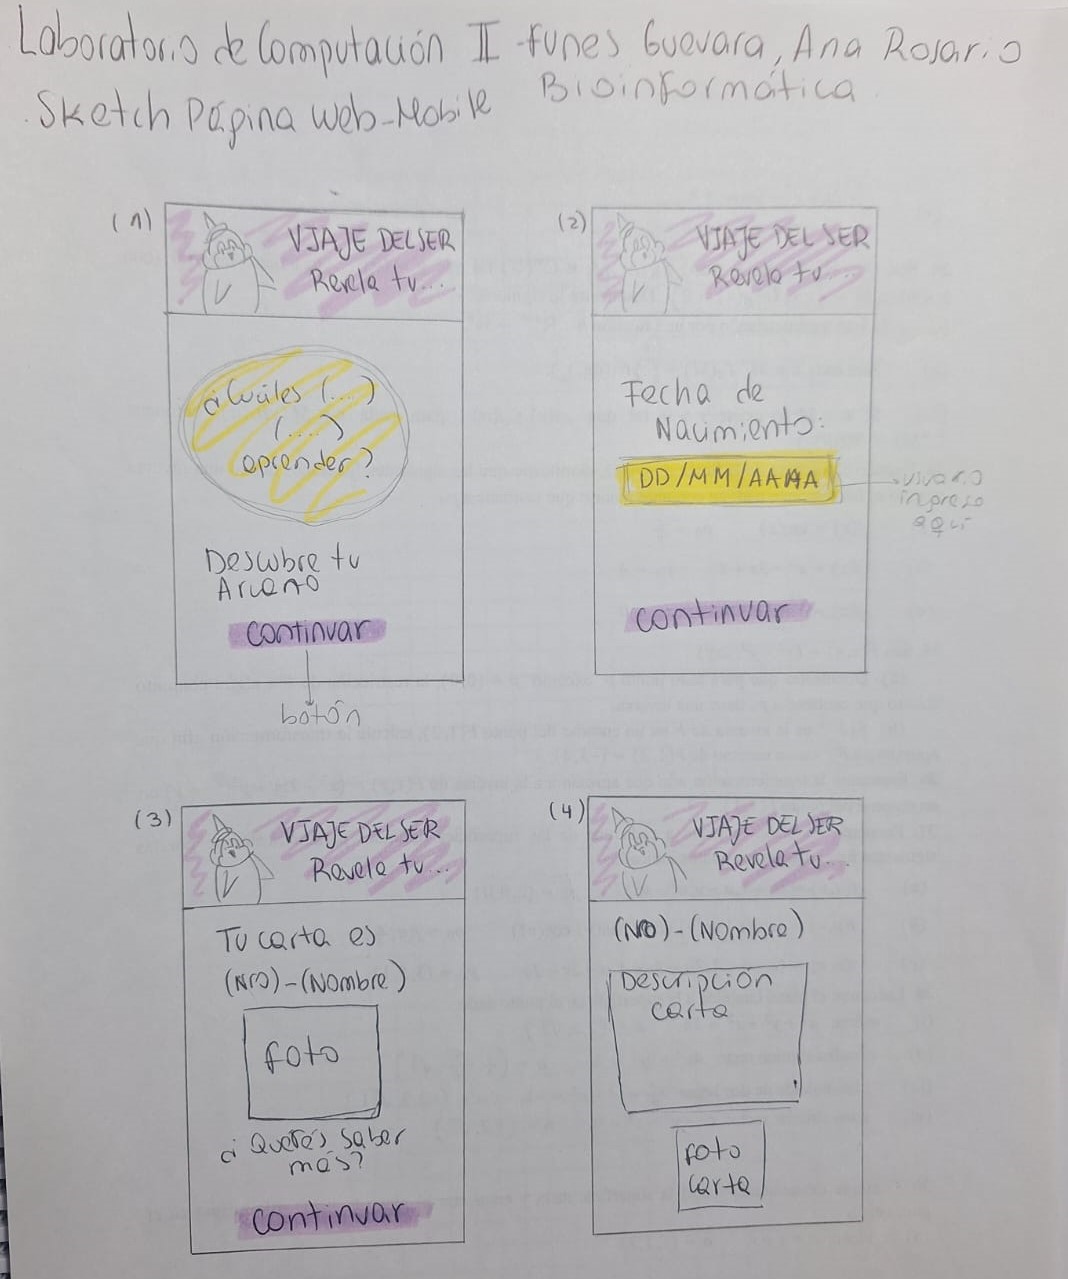 Laboratorio de Computación II - Funes Guevara, Ana Rosario
Bioinformática
Sketch Página web-Mobile
(1)
VIAJE DEL SER
Revela tu...
¿Cuáles (...)
(....)
aprender?
Descubre tu
Arcano
continuar
botón
(2)
VIAJE DEL SER
Revela tu...
Fecha de
Nacimiento:
DD/MM/AAAA
usuario
ingreso
aquí
continuar
(3)
VIAJE DEL SER
Revela tu...
Tu carta es
(Nro)-(Nombre)
foto
¿Querés saber
más?
continuar
(4)
VIAJE DEL SER
Revela tu...
(NO)-(Nombre)
Descripción
carta
foto
carta